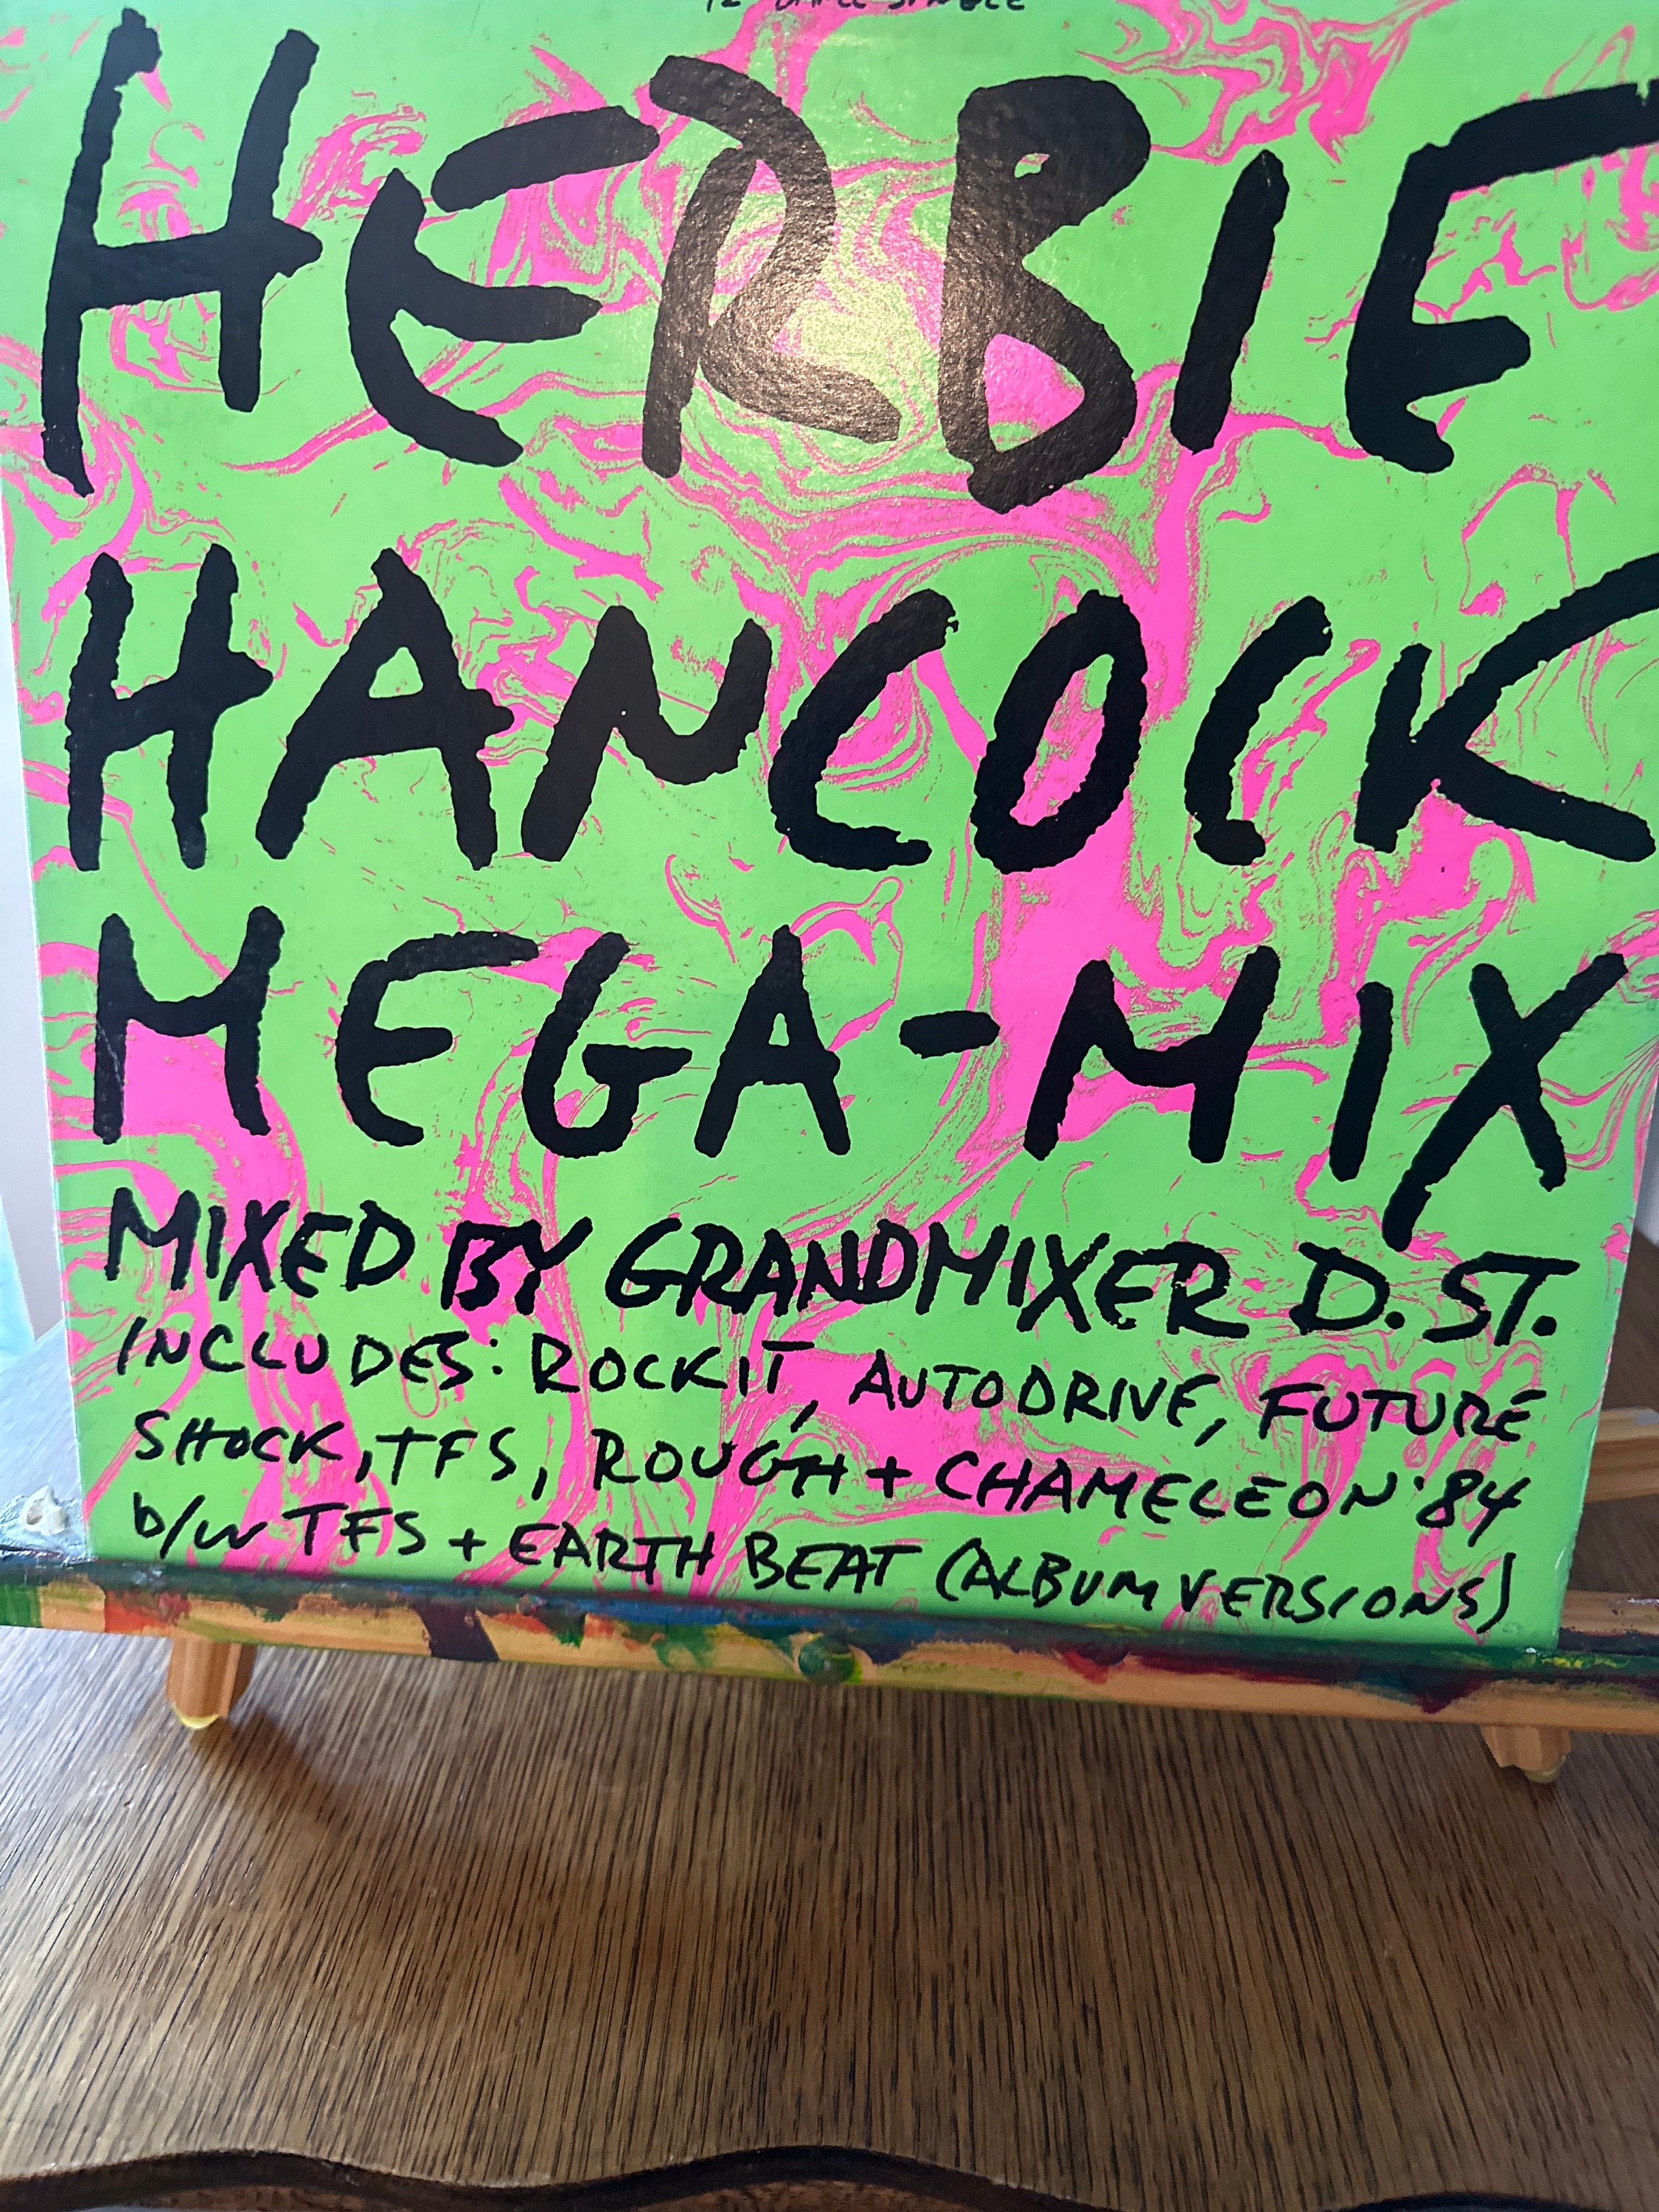 12" DANCE SINGLE
HERBIE
HANCOCK
MEGA-MIX
MIXED BY GRANDMIXER D. ST.
INCLUDES: ROCKIT, AUTODRIVE, FUTURE
SHOCK, TFS, ROUGH + CHAMELEON '84
b/w TFS + EARTH BEAT (ALBUM VERSIONS)